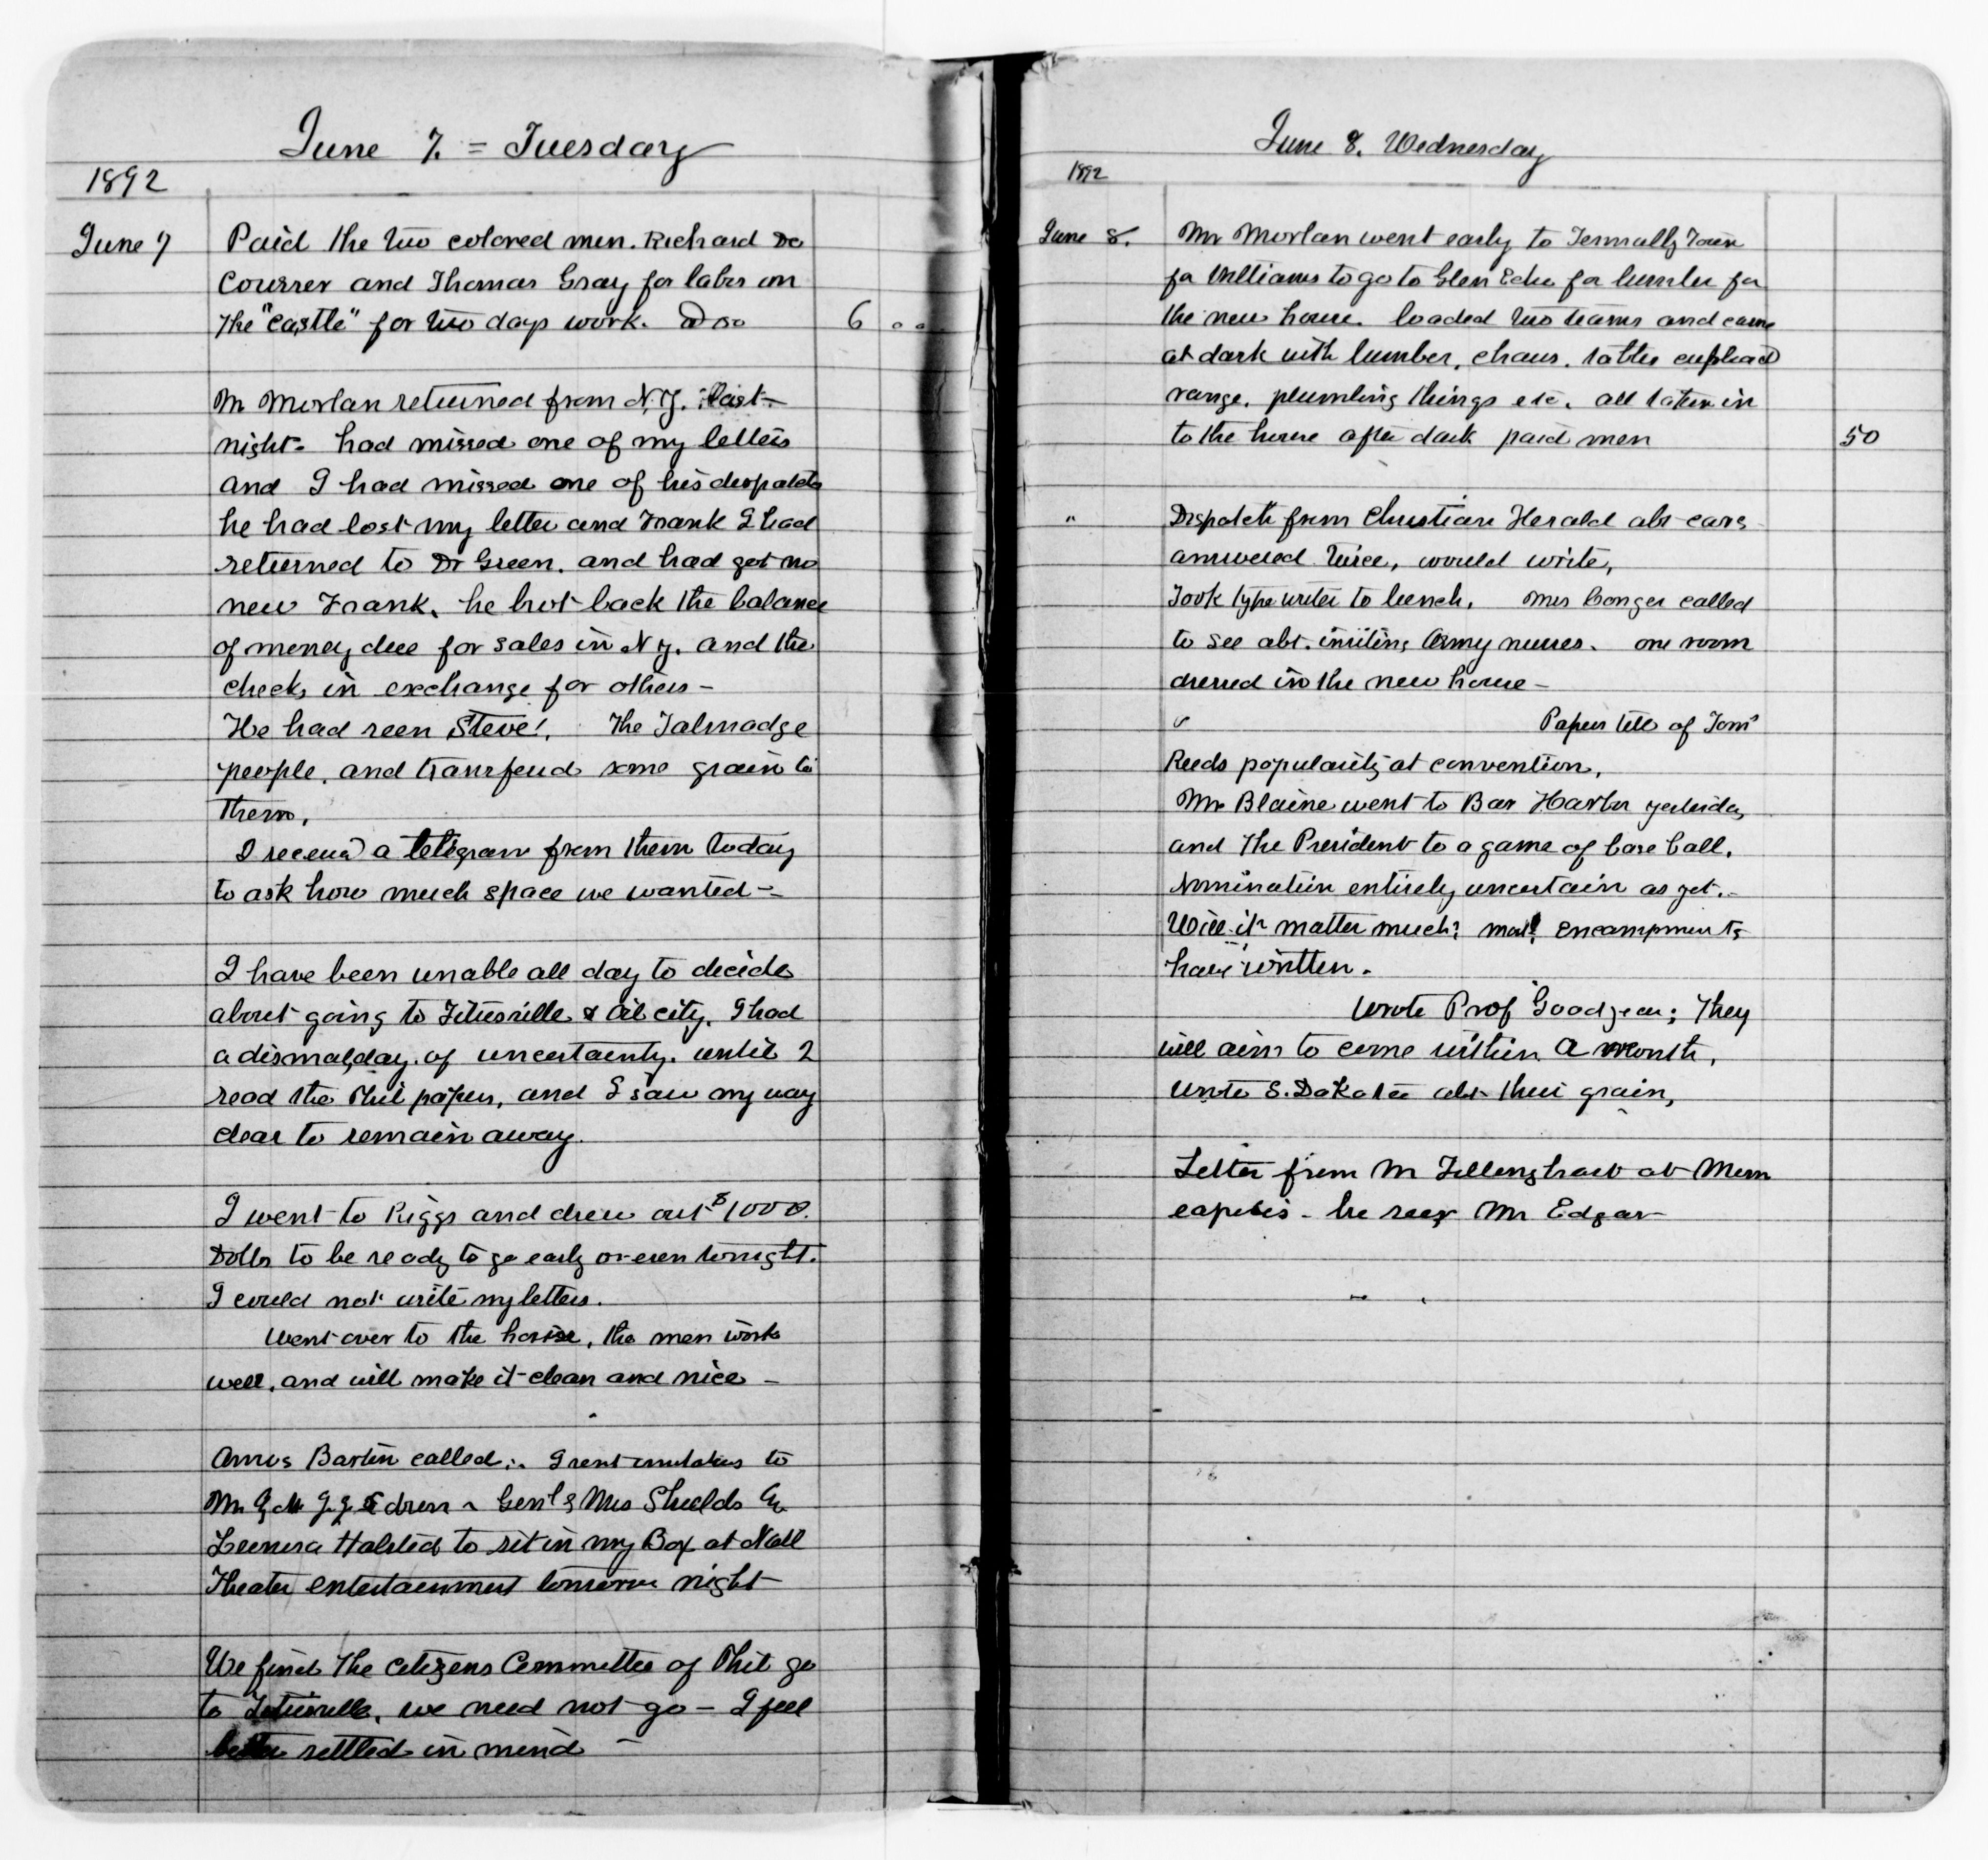 June 7. = Tuesday
1892
June 7 Paid the two colored men. Richard De
Courser and Thomas Gray for labor on
the "castle" for two days work. 6 00
Mr Morlan returned from N.Y. last
night. had missed one of my letters
and I had missed one of his despatches
he had lost my letter and Frank I had
returned to Dr Green. and had got no
new Frank, he brot back the balance
of money due for sales in N Y. and the
checks in exchange for others -
He had seen Steve!. The Talmadge
people. and transfered some grain to
them,
I received a telegram from them today
to ask how much space we wanted -
I have been unable all day to decide
about going to Titusville & Oil city. I had
a dismal day. of uncertainty. until I
read the Phil papers, and I saw my way
clear to remain away.
I went to Riggs and drew out $1000.
Dolls to be ready to go early or even tonight.
I could not write my letters.
Went over to the house, the men work
well, and will make it clean and nice -
Amos Barton called. I sent invitations to
Mr & Genl & Mrs Shields
Leonora Halsted to sit in my Box at Natl
Theater entertainment tomorrow night
We find the Citizens Committee of Phil go
to Titusville, we need not go - I feel
better settled in mind -
June 8. Wednesday
1892
June 8. Mr Morlan went early to Tennally Town
for Williams to go to Glen Echo for lumber for
the new house. loaded two teams and came
at dark with lumber, chairs. tables cupboard
range. plumbing things etc. all taken in
to the house after dark paid men 50
" Dispatch from Christian Herald abt cars
answered twice, would write,
Took type writer to lunch, Mrs Conger called
to see abt. inviting Army nurses. one room
dressed in the new house -
Papers tell of Tom
Reeds popularity at convention,
Mr Blaine went to Bar Harbor yesterday
and the President to a game of base ball.
Nomination entirely uncertain as yet. -
Will it matter much? encampments
have written.
Wrote Prof Goodyear; They
will aim to come within a month,
Wrote S. Dakota abt their grain,
Letter from Mr Tillinghast at Minn
eapolis - he sees Mr Edgar